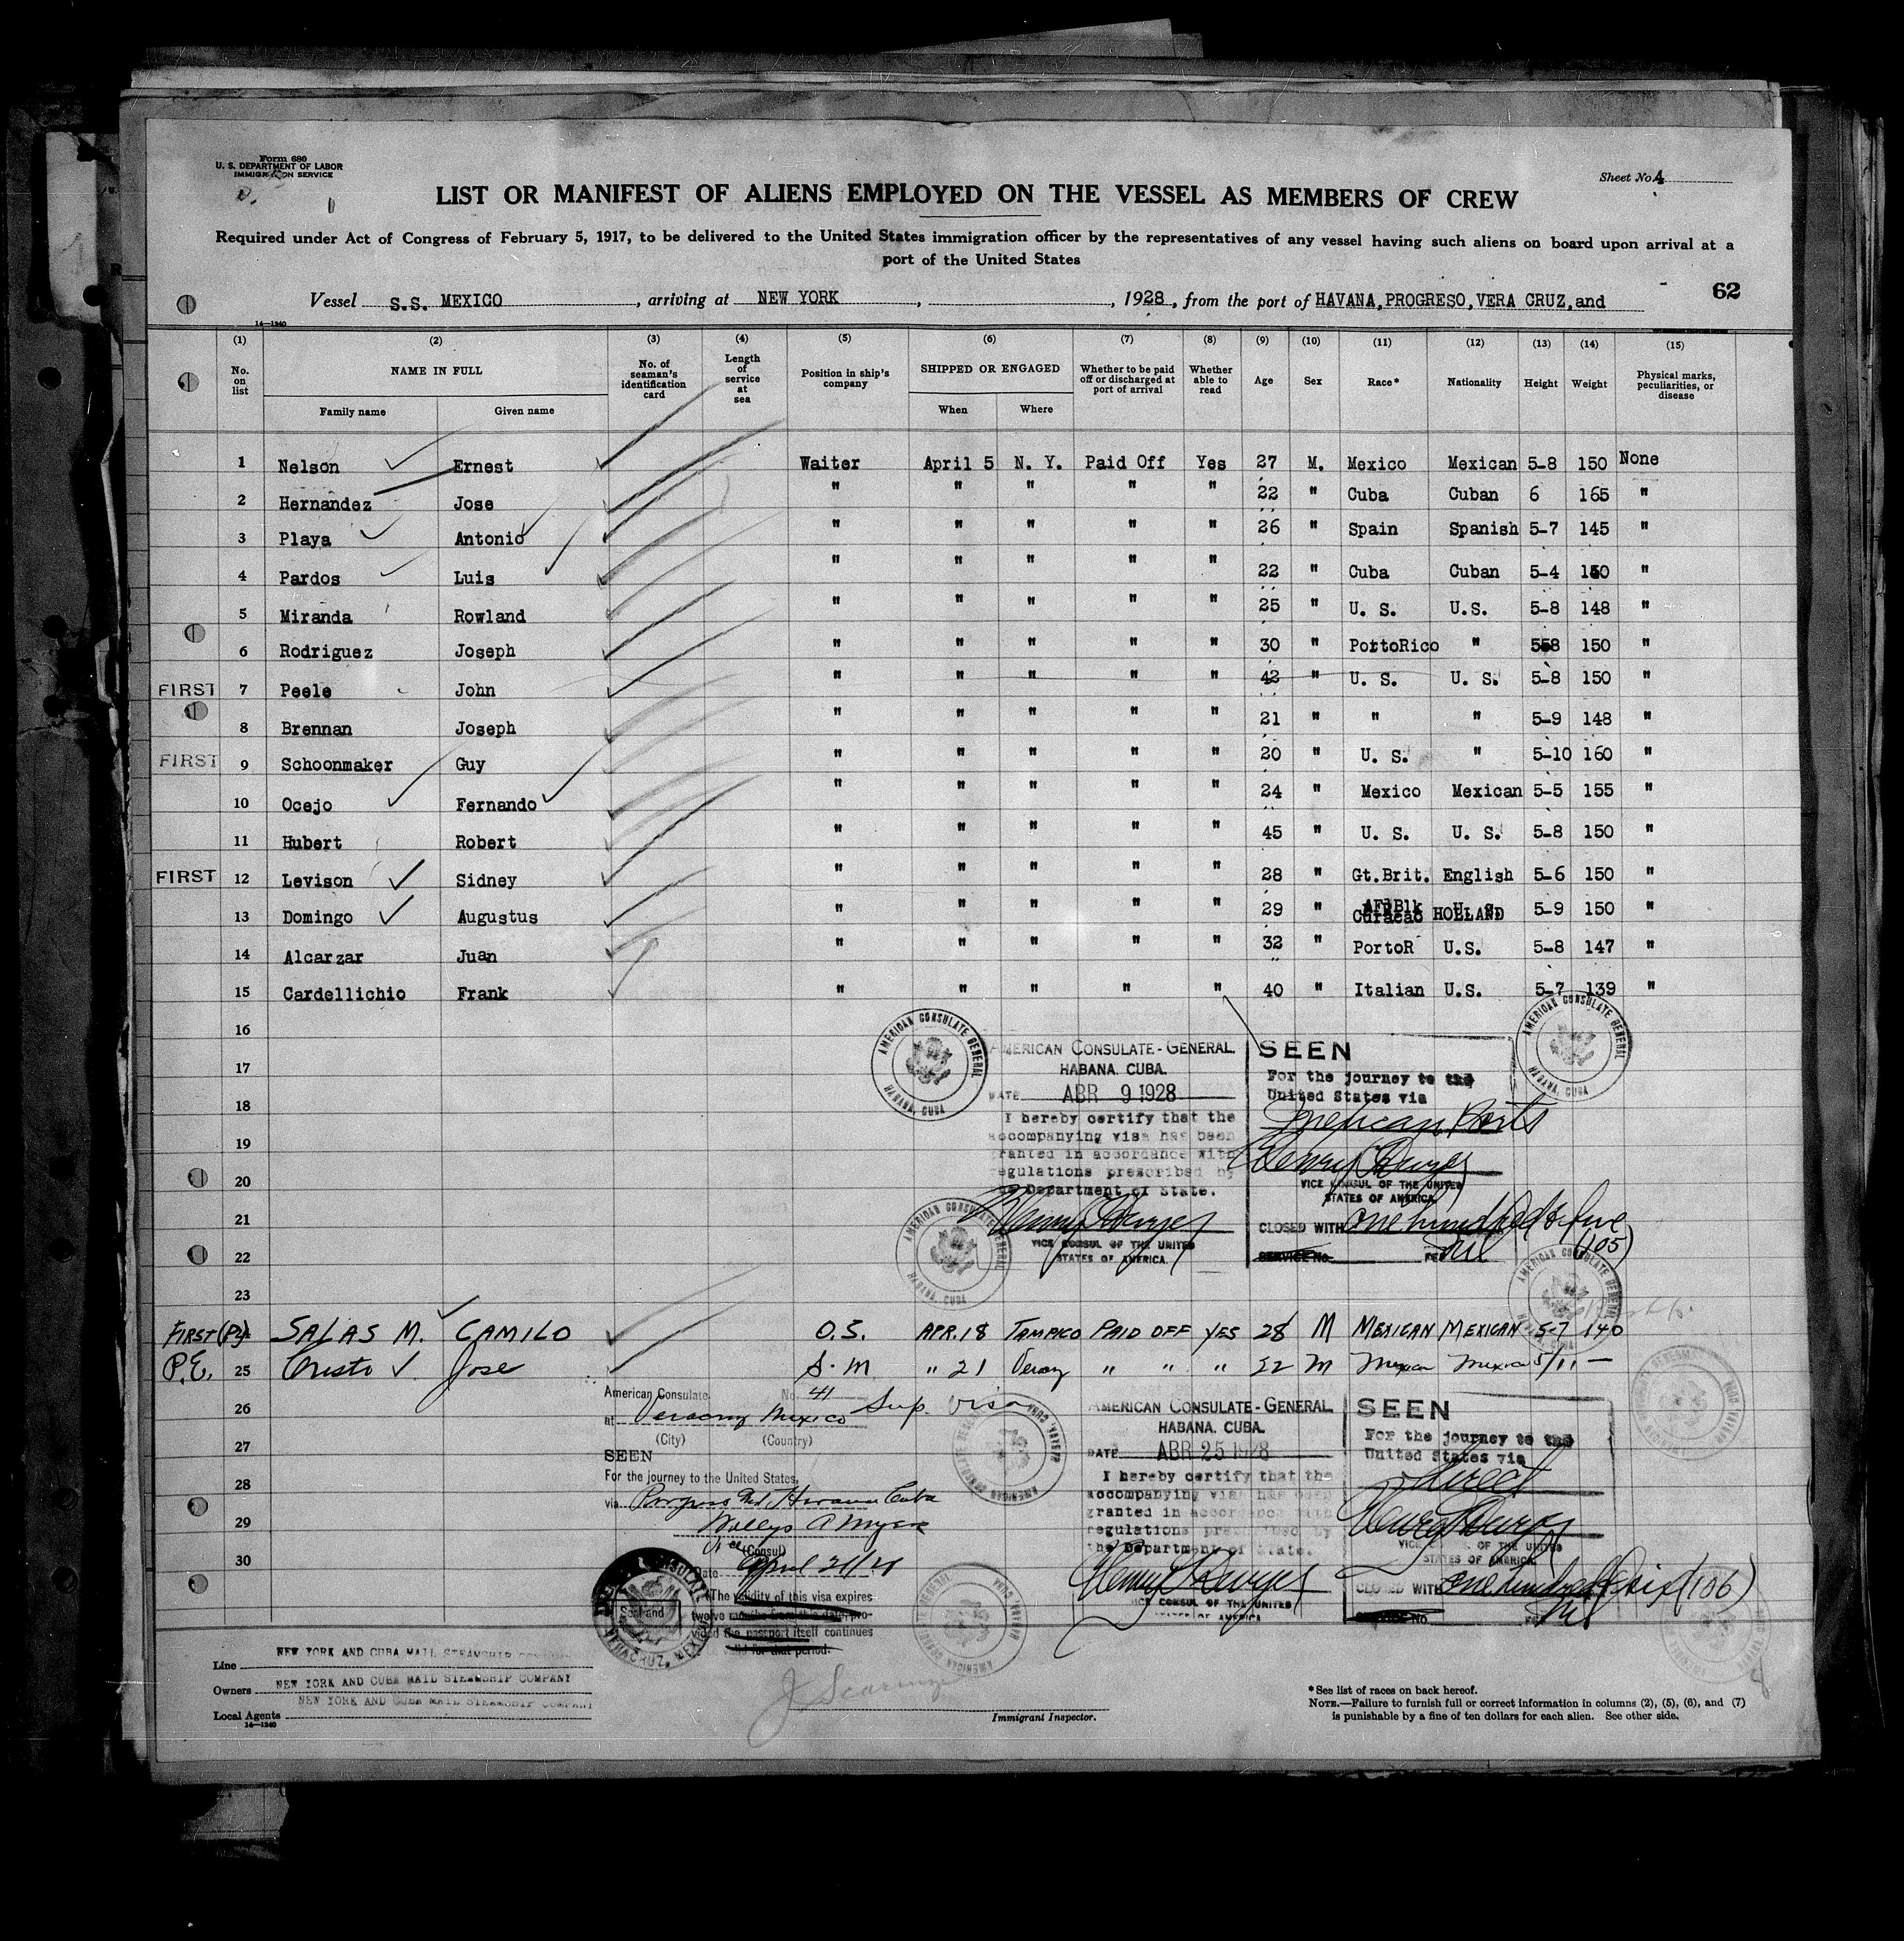 Form 680
U. S. DEPARTMENT OF LABOR
IMMIGRATION SERVICE
Sheet No. 4
LIST OR MANIFEST OF ALIENS EMPLOYED ON THE VESSEL AS MEMBERS OF CREW
Required under Act of Congress of February 5, 1917, to be delivered to the United States immigration officer by the representatives of any vessel having such aliens on board upon arrival at a
port of the United States
62
Vessel S.S. MEXICO, arriving at NEW YORK, , 1928, from the port of HAVANA, PROGRESO, VERA CRUZ, and
14—1240
(1) (2) (3) (4) (5) (6) (7) (8) (9) (10) (11) (12) (13) (14) (15)
No. on list NAME IN FULL Family name Given name No. of seaman's identification card Length of service at sea Position in ship's company SHIPPED OR ENGAGED When Where Whether to be paid off or discharged at port of arrival Whether able to read Age Sex Race* Nationality Height Weight Physical marks, peculiarities, or disease
1 Nelson Ernest Waiter April 5 N. Y. Paid Off Yes 27 M. Mexico Mexican 5-8 150 None
2 Hernandez Jose " " " " " 22 " Cuba Cuban 6 165 "
3 Playa Antonio " " " " " 26 " Spain Spanish 5-7 145 "
4 Pardos Luis " " " " " 22 " Cuba Cuban 5-4 "
5 Miranda Rowland " " " " " 25 " U. S. U.S. 5-8 148 "
6 Rodriguez Joseph " " " " " 30 " PortoRico " 558 150 "
FIRST 7 Peele John " " " " " 42 " U. S. U. S. 5-8 150 "
8 Brennan Joseph " " " " " 21 " " " 5-9 148 "
FIRST 9 Schoonmaker Guy " " " " " 20 " U. S. " 5-10 160 "
10 Ocejo Fernando " " " " " 24 " Mexico Mexican 5-5 155 "
11 Hubert Robert " " " " " 45 " U. S. U. S. 5-8 150 "
FIRST 12 Levison Sidney " " " " " 28 " Gt.Brit. English 5-6 150 "
13 Domingo Augustus " " " " " 29 " AFRBlk Curacao U. S. HOLLAND 5-9 150 "
14 Alcarzar Juan " " " " " 32 " PortoR U.S. 5-8 147 "
15 Cardellichio Frank " " " " " 40 " Italian U.S. 5-7 139 "
16
17
18
19
20
21
22
23
AMERICAN CONSULATE GENERAL HABANA, CUBA
AMERICAN CONSULATE-GENERAL
HABANA. CUBA.
DATE ABR 9 1928
I hereby certify that the
accompanying visa has been
granted in accordance with
regulations prescribed by
the Department of State.
VICE CONSUL OF THE UNITED
STATES OF AMERICA.
AMERICAN CONSULATE GENERAL HABANA, CUBA
SEEN
For the journey to the
United States via
Mexican Ports
VICE CONSUL OF THE UNITED
STATES OF AMERICA
CLOSED WITH one hundred & five
(105)
SERVICE No. FEE nil
AMERICAN CONSULATE GENERAL HABANA, CUBA
AMERICAN CONSULATE GENERAL HABANA, CUBA
FIRST (PY) SALAS M. CAMILO O.S. APR. 18 TAMPICO PAID OFF YES 28 M MEXICAN MEXICAN 5-7 140
P.E. 25 Cresto Jose S. M " 21 Veracruz " " " 22 M Mexican Mexican 5/11 —
26
27
28
29
30
American Consulate No. 41 Sup. visa
at Veracruz Mexico
(City) (Country)
SEEN
For the journey to the United States,
via Progreso Mex Havana Cuba
Wallys A Myers
Vice (Consul)
Date April 21/28
The validity of this visa expires
twelve months from the date, pro-
vided the passport itself continues
valid for that period.
VERACRUZ, MEXICO
AMERICAN CONSULATE GENERAL HABANA, CUBA
AMERICAN CONSULATE-GENERAL
HABANA. CUBA.
DATE ABR 25 1928
I hereby certify that the
accompanying visa has been
granted in accordance with
regulations prescribed by
the Department of State.
VICE CONSUL OF THE UNITED
STATES OF AMERICA
SEEN
For the journey to the
United States via
direct
VICE CONSUL OF THE UNITED
STATES OF AMERICA
CLOSED WITH one hundred & six (106)
SERVICE No. FEE nil
Line NEW YORK AND CUBA MAIL STEAMSHIP COMPANY
Owners NEW YORK AND CUBA MAIL STEAMSHIP COMPANY
Local Agents NEW YORK AND CUBA MAIL STEAMSHIP COMPANY
14—1240
Immigrant Inspector.
*See list of races on back hereof.
NOTE.—Failure to furnish full or correct information in columns (2), (5), (6), and (7)
is punishable by a fine of ten dollars for each alien. See other side.